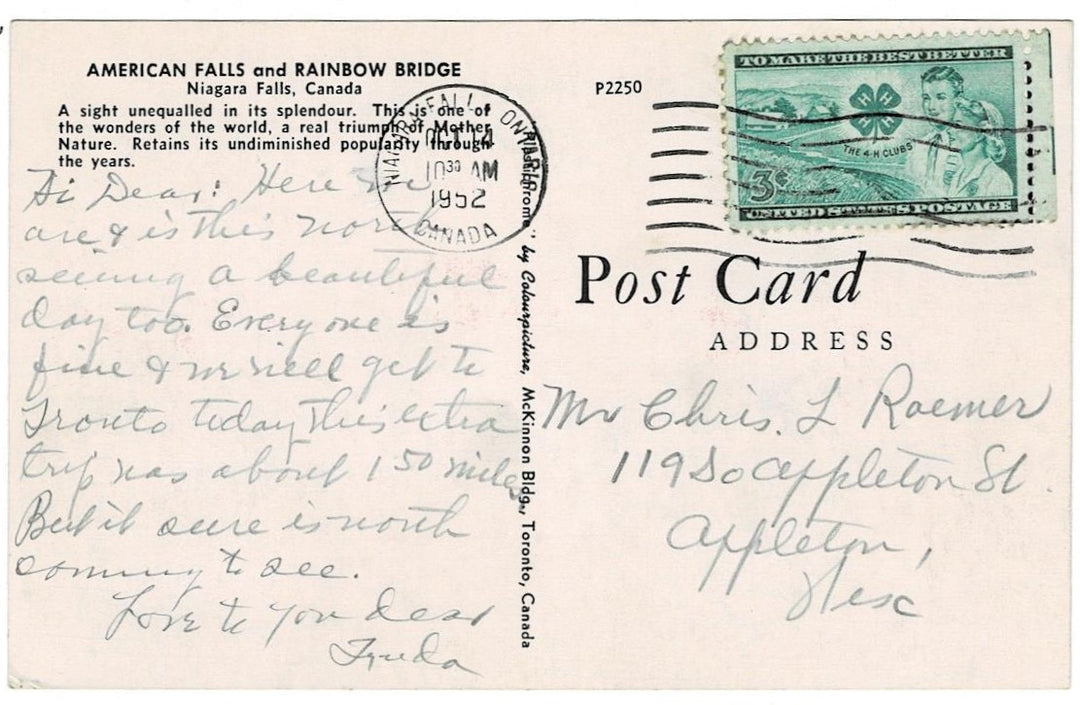 AMERICAN FALLS and RAINBOW BRIDGE
Niagara Falls, Canada
A sight unequalled in its splendour. This is one of
the wonders of the world, a real triumph of Mother
Nature. Retains its undiminished popularity through
the years.
P2250
NIAGARA FALLS ONTARIO
OCT 14
10 30 AM
1952
CANADA
TO MAKE THE BEST BETTER
H H H H
THE 4-H CLUBS
3¢
UNITED STATES POSTAGE
Hi Dear: Here we
are & is this worth
seeing a beautiful
day too. Every one is
fine & we will get to
Tronto today this extra
trip was about 150 miles
But it sure is worth
coming to see.
Love to you dear
"Plastichrome" by Colourpicture, McKinnon Bldg., Toronto, Canada
Post Card
ADDRESS
Mr Chris. L Roemer
119 So Appleton St.
Appleton,
Wisc